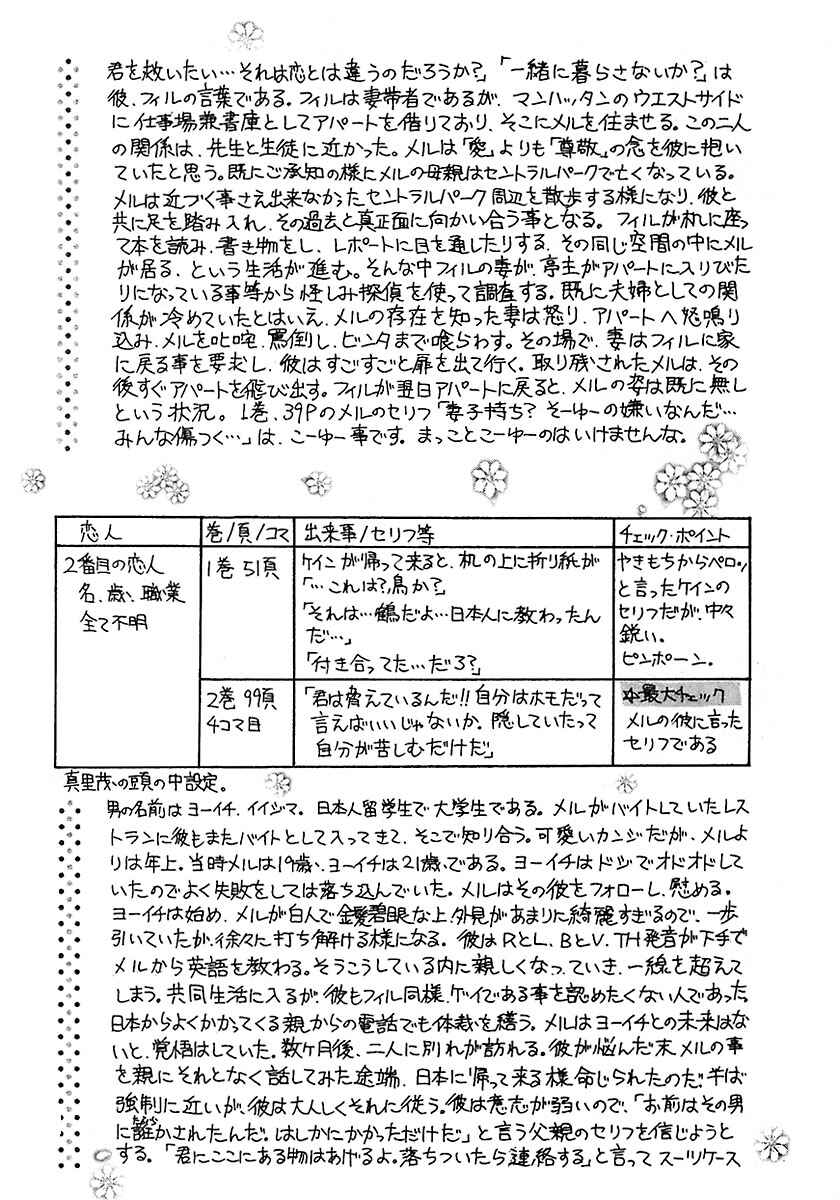 君を救いたい…それは恋とは違うのだろうか?」「一緒に暮らさないか?」は
彼、フィルの言葉である。フィルは妻帯者であるが、マンハッタンのウエストサイド
に仕事場兼書庫としてアパートを借りており、そこにメルを住ませる。この二人
の関係は、先生と生徒に近かった。メルは「愛」よりも「尊敬」の念を彼に抱い
ていたと思う。既にご承知の様にメルの母親はセントラルパークで亡くなっている。
メルは近づく事さえ出来なかったセントラルパーク周辺を散歩する様になり、彼と
共に足を踏み入れ、その過去と真正面に向かい合う事となる。フィルが机に座っ
て本を読み、書き物をし、レポートに目を通したりする、その同じ空間の中にメル
が居る、という生活が進む。そんな中フィルの妻が、亭主がアパートに入りびた
りになっている事等から怪しみ探偵を使って調査する。既に夫婦としての関
係が冷めていたとはいえ、メルの存在を知った妻は怒り、アパートへ怒鳴り
込み、メルを叱咤、罵倒し、ビンタまで喰らわす。その場で、妻はフィルに家
に戻る事を要求し、彼はすごすごと扉を出て行く。取り残されたメルは、その
後すぐアパートを飛び出す。フィルが翌日アパートに戻ると、メルの姿は既に無し
という状況。1巻、39Pのメルのセリフ「妻子持ち?そーゆーの嫌いなんだ…
みんな傷つく…」は、こーゆー事です。まっことこーゆーのはいけませんな。
恋人 巻/頁/コマ 出来事/セリフ等 チェック・ポイント
2番目の恋人
名、歳、職業
全て不明
1巻 51頁
ケインが帰って来ると、机の上に折り紙が
「…これは?鳥か?」
「それは…鶴だよ…日本人に教わったん
だ…」
「付き合ってた…だろ?」
やきもちからペロッ
と言ったケインの
セリフだが、中々
鋭い。
ピンポーン。
2巻 99頁
4コマ目
「君は脅えているんだ!!自分はホモだって
言えばいいじゃないか。隠していたって
自分が苦しむだけだ」
☆最大チェック
メルの彼に言った
セリフである
真里茂の頭の中設定。
男の名前はヨーイチ、イイジマ。日本人留学生で大学生である。メルがバイトしていたレス
トランに彼もまたバイトとして入ってきて、そこで知り合う。可愛いカンジだが、メルよ
りは年上。当時メルは19歳、ヨーイチは21歳である。ヨーイチはドジでオドオドして
いたのでよく失敗をしては落ち込んでいた。メルはその彼をフォローし、慰める。
ヨーイチは始め、メルが白人で金髪碧眼な上、外見があまりに綺麗すぎるので、一歩
引いていたが、徐々に打ち解ける様になる。彼はRとL、BとV、TH発音が下手で
メルから英語を教わる。そうこうしている内に親しくなっていき、一線を超えて
しまう。共同生活に入るが、彼もフィル同様、ゲイである事を認めたくない人であった。
日本からよくかかってくる親からの電話でも体裁を繕う。メルはヨーイチとの未来はな
いと、覚悟はしていた。数ヶ月後、二人に別れが訪れる。彼が悩んだ末、メルの事
を親にそれとなく話してみた途端、日本に帰って来る様命じられたのだ。半ば
強制に近いが、彼は大人しくそれに従う。彼は意志が弱いので、「お前はその男
に誑かされたんだ。はしかにかかっただけだ」と言う父親のセリフを信じようと
する。「君にここにある物はあげるよ。落ちついたら連絡する」と言ってスーツケース